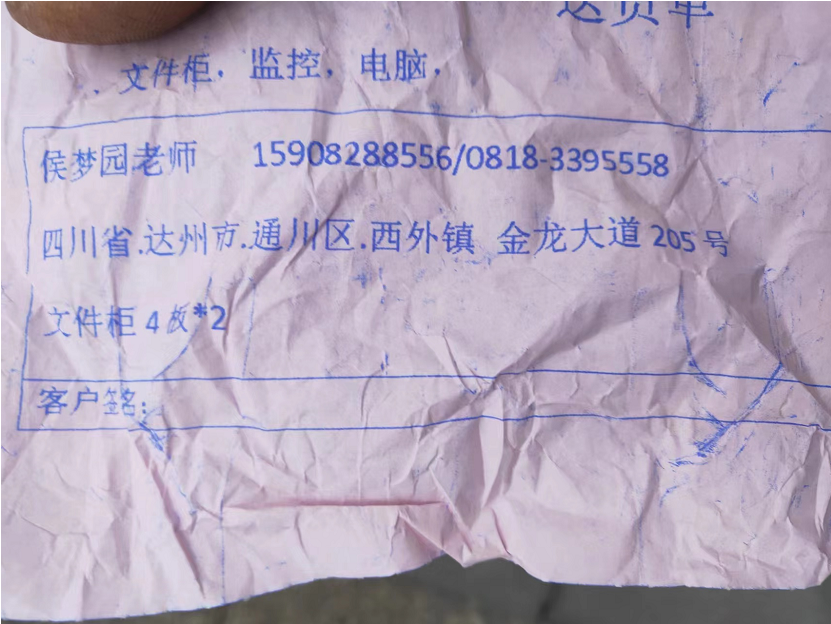 送货单
、文件柜，监控，电脑，
侯梦园老师 15908288556/0818-3395558
四川省.达州市.通川区.西外镇 金龙大道 205 号
文件柜 4 板*2
客户签名：